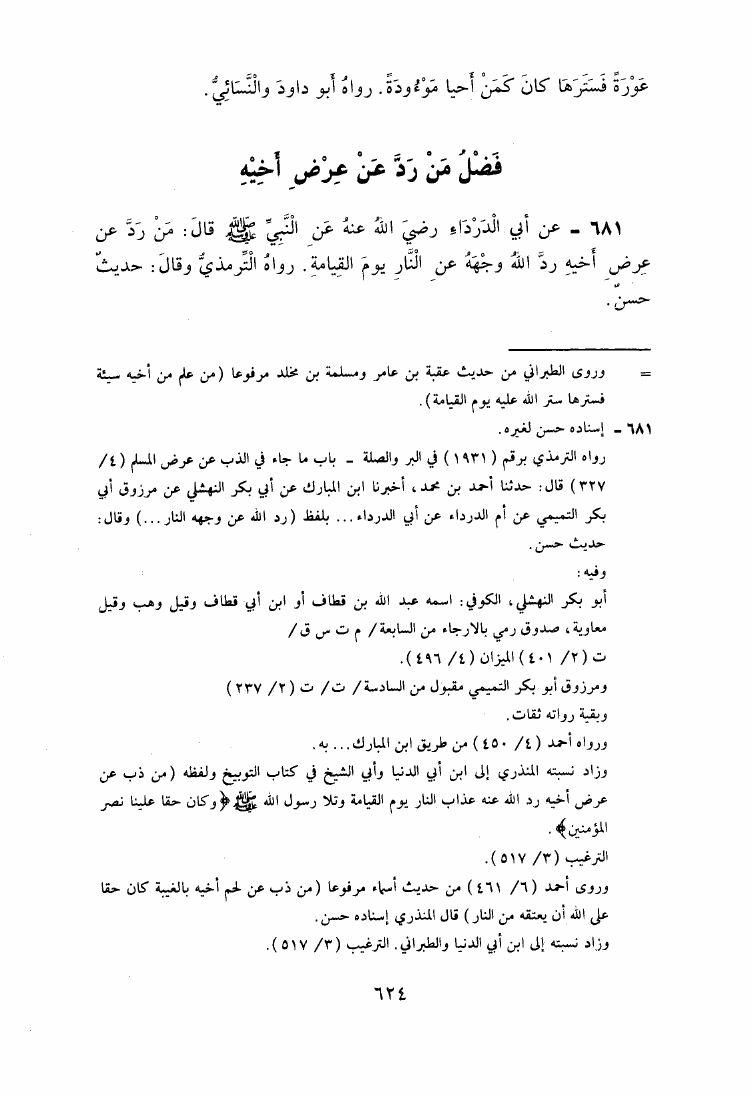 عَوْرَةً فَسَتَرَهَا كانَ كَمَنْ أَحيا مَوْءُودَةً. رواهُ أَبو داودَ والْنَّسَائِيُّ.
فَضْلُ مَنْ رَدَّ عَنْ عِرْضِ أَخِيْهِ
٦٨١ - عن أَبي الْدَرْدَاءِ رضيَ اللهُ عنهُ عَنِ الْنَبِيِّ ﷺ قالَ: مَنْ رَدَّ عن
عِرضِ أَخيهِ ردَّ اللهُ وجْهَهُ عنِ الْنَّارِ يومَ القِيامةِ. رواهُ الْتِّرمذيُّ وقالَ: حديثٌ
حسنٌ.
= وروى الطبراني من حديث عقبة بن عامر ومسلمة بن مخلد مرفوعا (من علم من أخيه سيئة
فسترها ستر الله عليه يوم القيامة).
٦٨١ - إسناده حسن لغيره.
رواه الترمذي برقم (١٩٣١) في البر والصلة - باب ما جاء في الذب عن عرض المسلم (٤/
٣٢٧) قال: حدثنا أحمد بن محمد، أخبرنا ابن المبارك عن أبي بكر النهشلي عن مرزوق أبي
بكر التميمي عن أم الدرداء عن أبي الدرداء... بلفظ (رد الله عن وجهه النار...) وقال:
حديث حسن.
وفيه:
أبو بكر النهشلي، الكوفي: اسمه عبد الله بن قطاف أو ابن أبي قطاف وقيل وهب وقيل
معاوية، صدوق رمي بالارجاء من السابعة/ م ت س ق/
ت (٢/ ٤٠١) الميزان (٤/ ٤٩٦).
ومرزوق أبو بكر التميمي مقبول من السادسة/ ت/ ت (٢/ ٢٣٧)
وبقية رواته ثقات.
ورواه أحمد (٤/ ٤٥٠) من طريق ابن المبارك... به.
وزاد نسبته المنذري إلى ابن أبي الدنيا وأبي الشيخ في كتاب التوبيخ ولفظه (من ذب عن
عرض أخيه رد الله عنه عذاب النار يوم القيامة وتلا رسول الله ﷺ ﴿وكان حقا علينا نصر
المؤمنين﴾.
الترغيب (٣/ ٥١٧).
وروى أحمد (٦/ ٤٦١) من حديث أسماء مرفوعا (من ذب عن لحم أخيه بالغيبة كان حقا
على الله أن يعتقه من النار) قال المنذري إسناده حسن.
وزاد نسبته إلى ابن أبي الدنيا والطبراني. الترغيب (٣/ ٥١٧).
٦٢٤